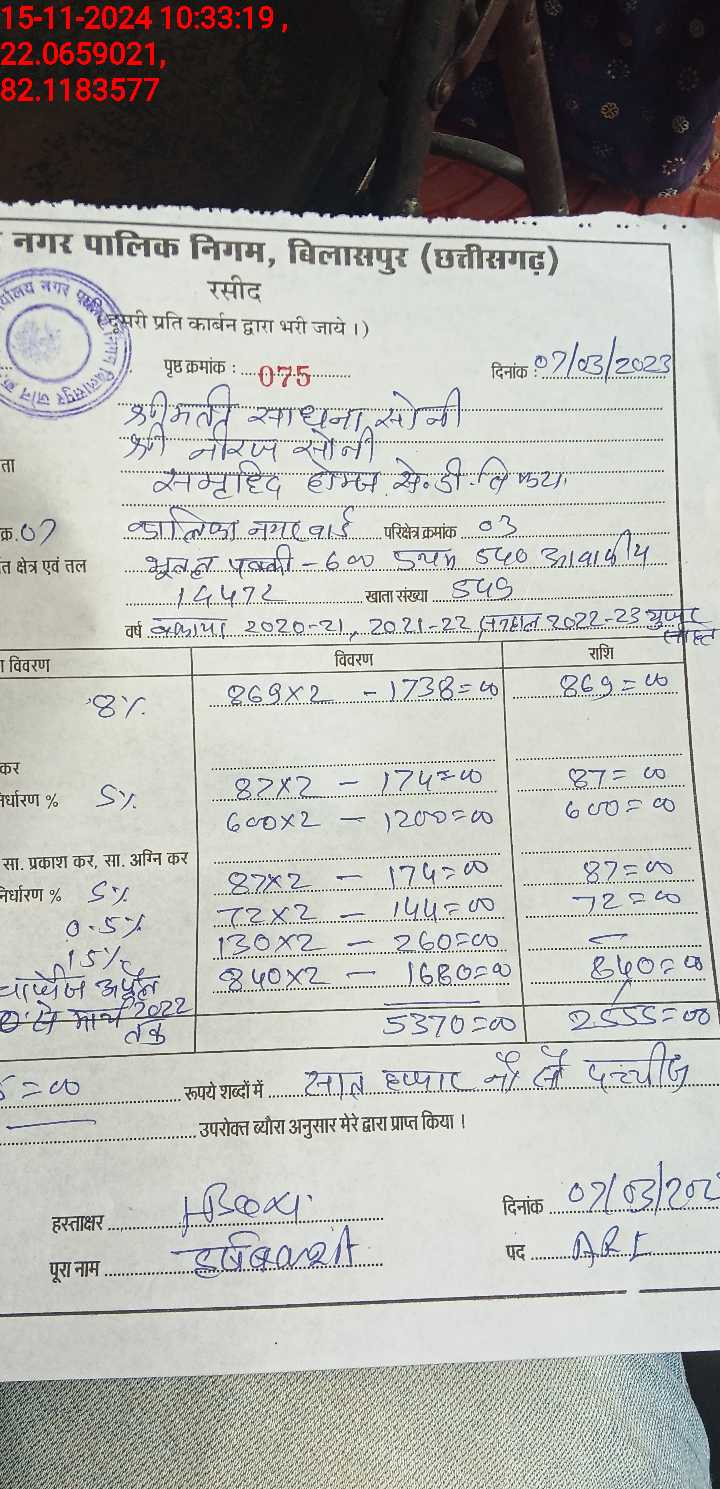 15-11-2024 10:33:19 ,
22.0659021,
82.1183577
नगर पालिक निगम, बिलासपुर (छत्तीसगढ़)
रसीद
दूसरी प्रति कार्बन द्वारा भरी जाये ।)
पृष्ठ क्रमांक : 075 दिनांक : 07/03/2023
श्रीमती साधना सोनी
श्री नीरज सोनी
ता
क्र. 07 कालिका नगर वार्ड परिक्षेत्र क्रमांक 03
त क्षेत्र एवं तल भूतल पक्की - 600 540 आवासीय
खाता संख्या 549
वर्ष बकाया 2020-21, 2021-22 2022-23
विवरण विवरण राशि
8% 869×2 - 1738=00 869=00
कर
निर्धारण % 5% 87×2 - 174=00 87=00
600×2 - 1200=00 600=00
सा. प्रकाश कर, सा. अग्नि कर
निर्धारण % 5% 87×2 - 174=00 87=00
0.5% 72×2 - 144=00 72=00
15% 130×2 - 260=00 -
840×2 - 1680=00 840=00
से मार्च 2022
तक 5370=00 2555=00
5=00 रूपये शब्दों में सात हजार नौ सौ पच्चीस
उपरोक्त ब्यौरा अनुसार मेरे द्वारा प्राप्त किया ।
हस्ताक्षर दिनांक 07/03/202
पूरा नाम पद ARI